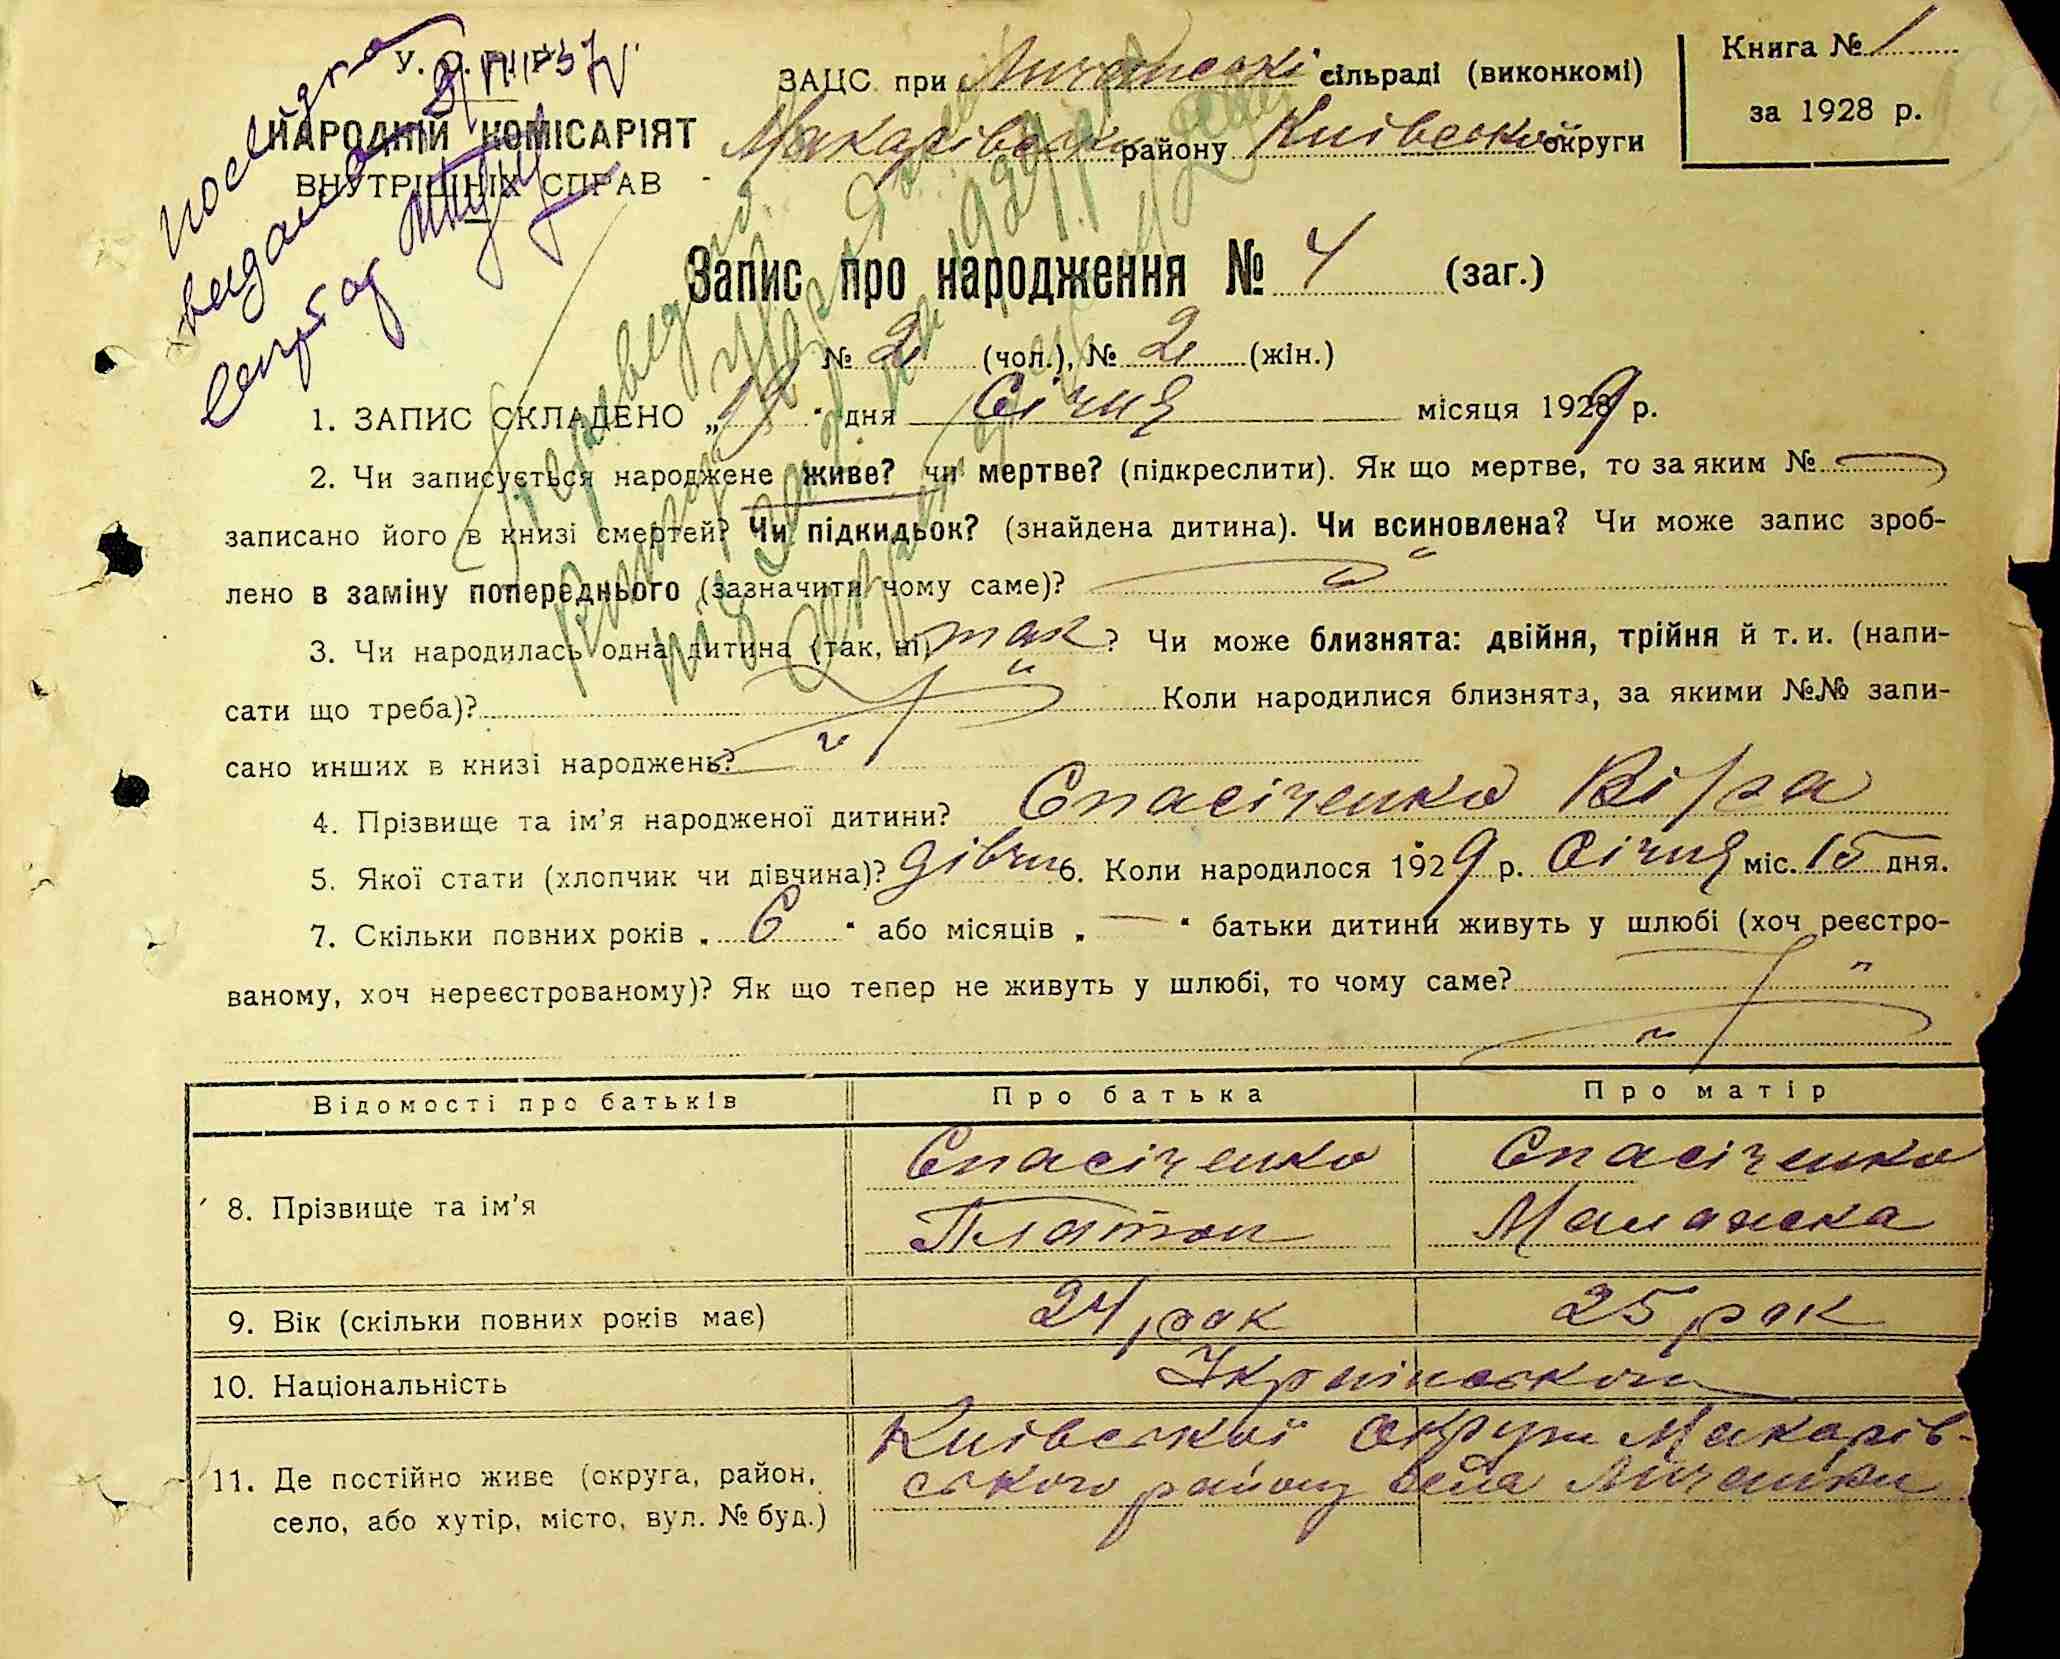 У. С. Р. Р.
НАРОДНІЙ КОМІСАРІЯТ
ВНУТРІШНІХ СПРАВ
видано
ЗАЦС при Личанські сільраді (виконкомі)
Макарівськ району Київської округи
Книга № 1
за 1928 р.
Запис про народження № 4 (заг.)
№ 2 (чол.), № 2 (жін.)
1. ЗАПИС СКЛАДЕНО „19“ дня Січня місяця 1929 р.
2. Чи записується народжене живе? чи мертве? (підкреслити). Як що мертве, то за яким №
записано його в книзі смертей? Чи підкидьок? (знайдена дитина). Чи всиновлена? Чи може запис зроб-
лено в заміну попереднього (зазначити чому саме)?
3. Чи народилась одна дитина (так, ні) так? Чи може близнята: двійня, трійня й т. и. (напи-
сати що треба)? Коли народилися близнята, за якими №№ запи-
сано инших в книзі народжень?
4. Прізвище та ім'я народженої дитини? Спасіченко Віра
5. Якої стати (хлопчик чи дівчина)? дівчи 6. Коли народилося 1929 р. Січня міс. 15 дня.
7. Скільки повних років „6“ або місяців „—“ батьки дитини живуть у шлюбі (хоч реєстро-
ваному, хоч нереєстрованому)? Як що тепер не живуть у шлюбі, то чому саме?
Відомості про батьків Про батька Про матір
8. Прізвище та ім'я Спасіченко Платон Спасіченко Маланка
9. Вік (скільки повних років має) 24 рок 25 рок
10. Національність Українськои
11. Де постійно живе (округа, район,
село, або хутір, місто, вул. № буд.)
Київської округи Макарів-
ського району села Личанки